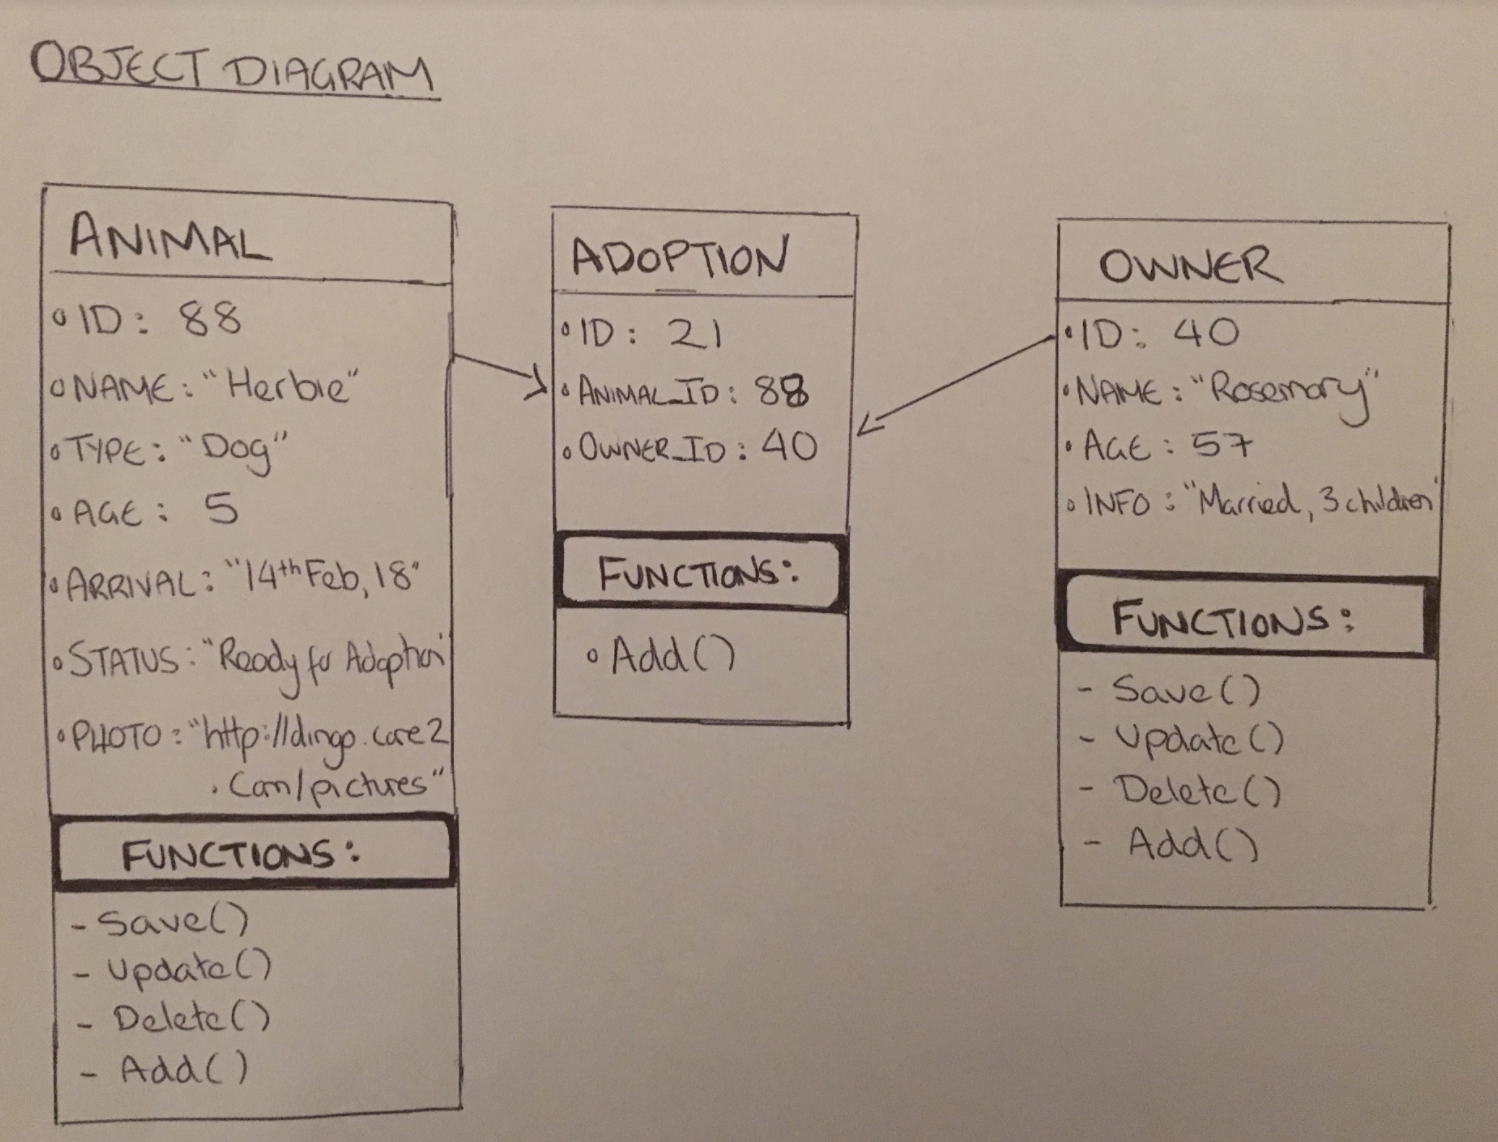 OBJECT DIAGRAM
ANIMAL
ID: 88
NAME: "Herbie"
TYPE: "Dog"
AGE: 5
ARRIVAL: "14th Feb, 18"
STATUS: "Ready for Adoption"
PHOTO: "http://dingo.care2
.com/pictures"
FUNCTIONS:
- Save()
- Update()
- Delete()
- Add()
ADOPTION
ID: 21
ANIMAL_ID: 88
OWNER_ID: 40
FUNCTIONS:
Add()
OWNER
ID: 40
NAME: "Rosemary"
AGE: 57
INFO: "Married, 3 children"
FUNCTIONS:
- Save()
- Update()
- Delete()
- Add()